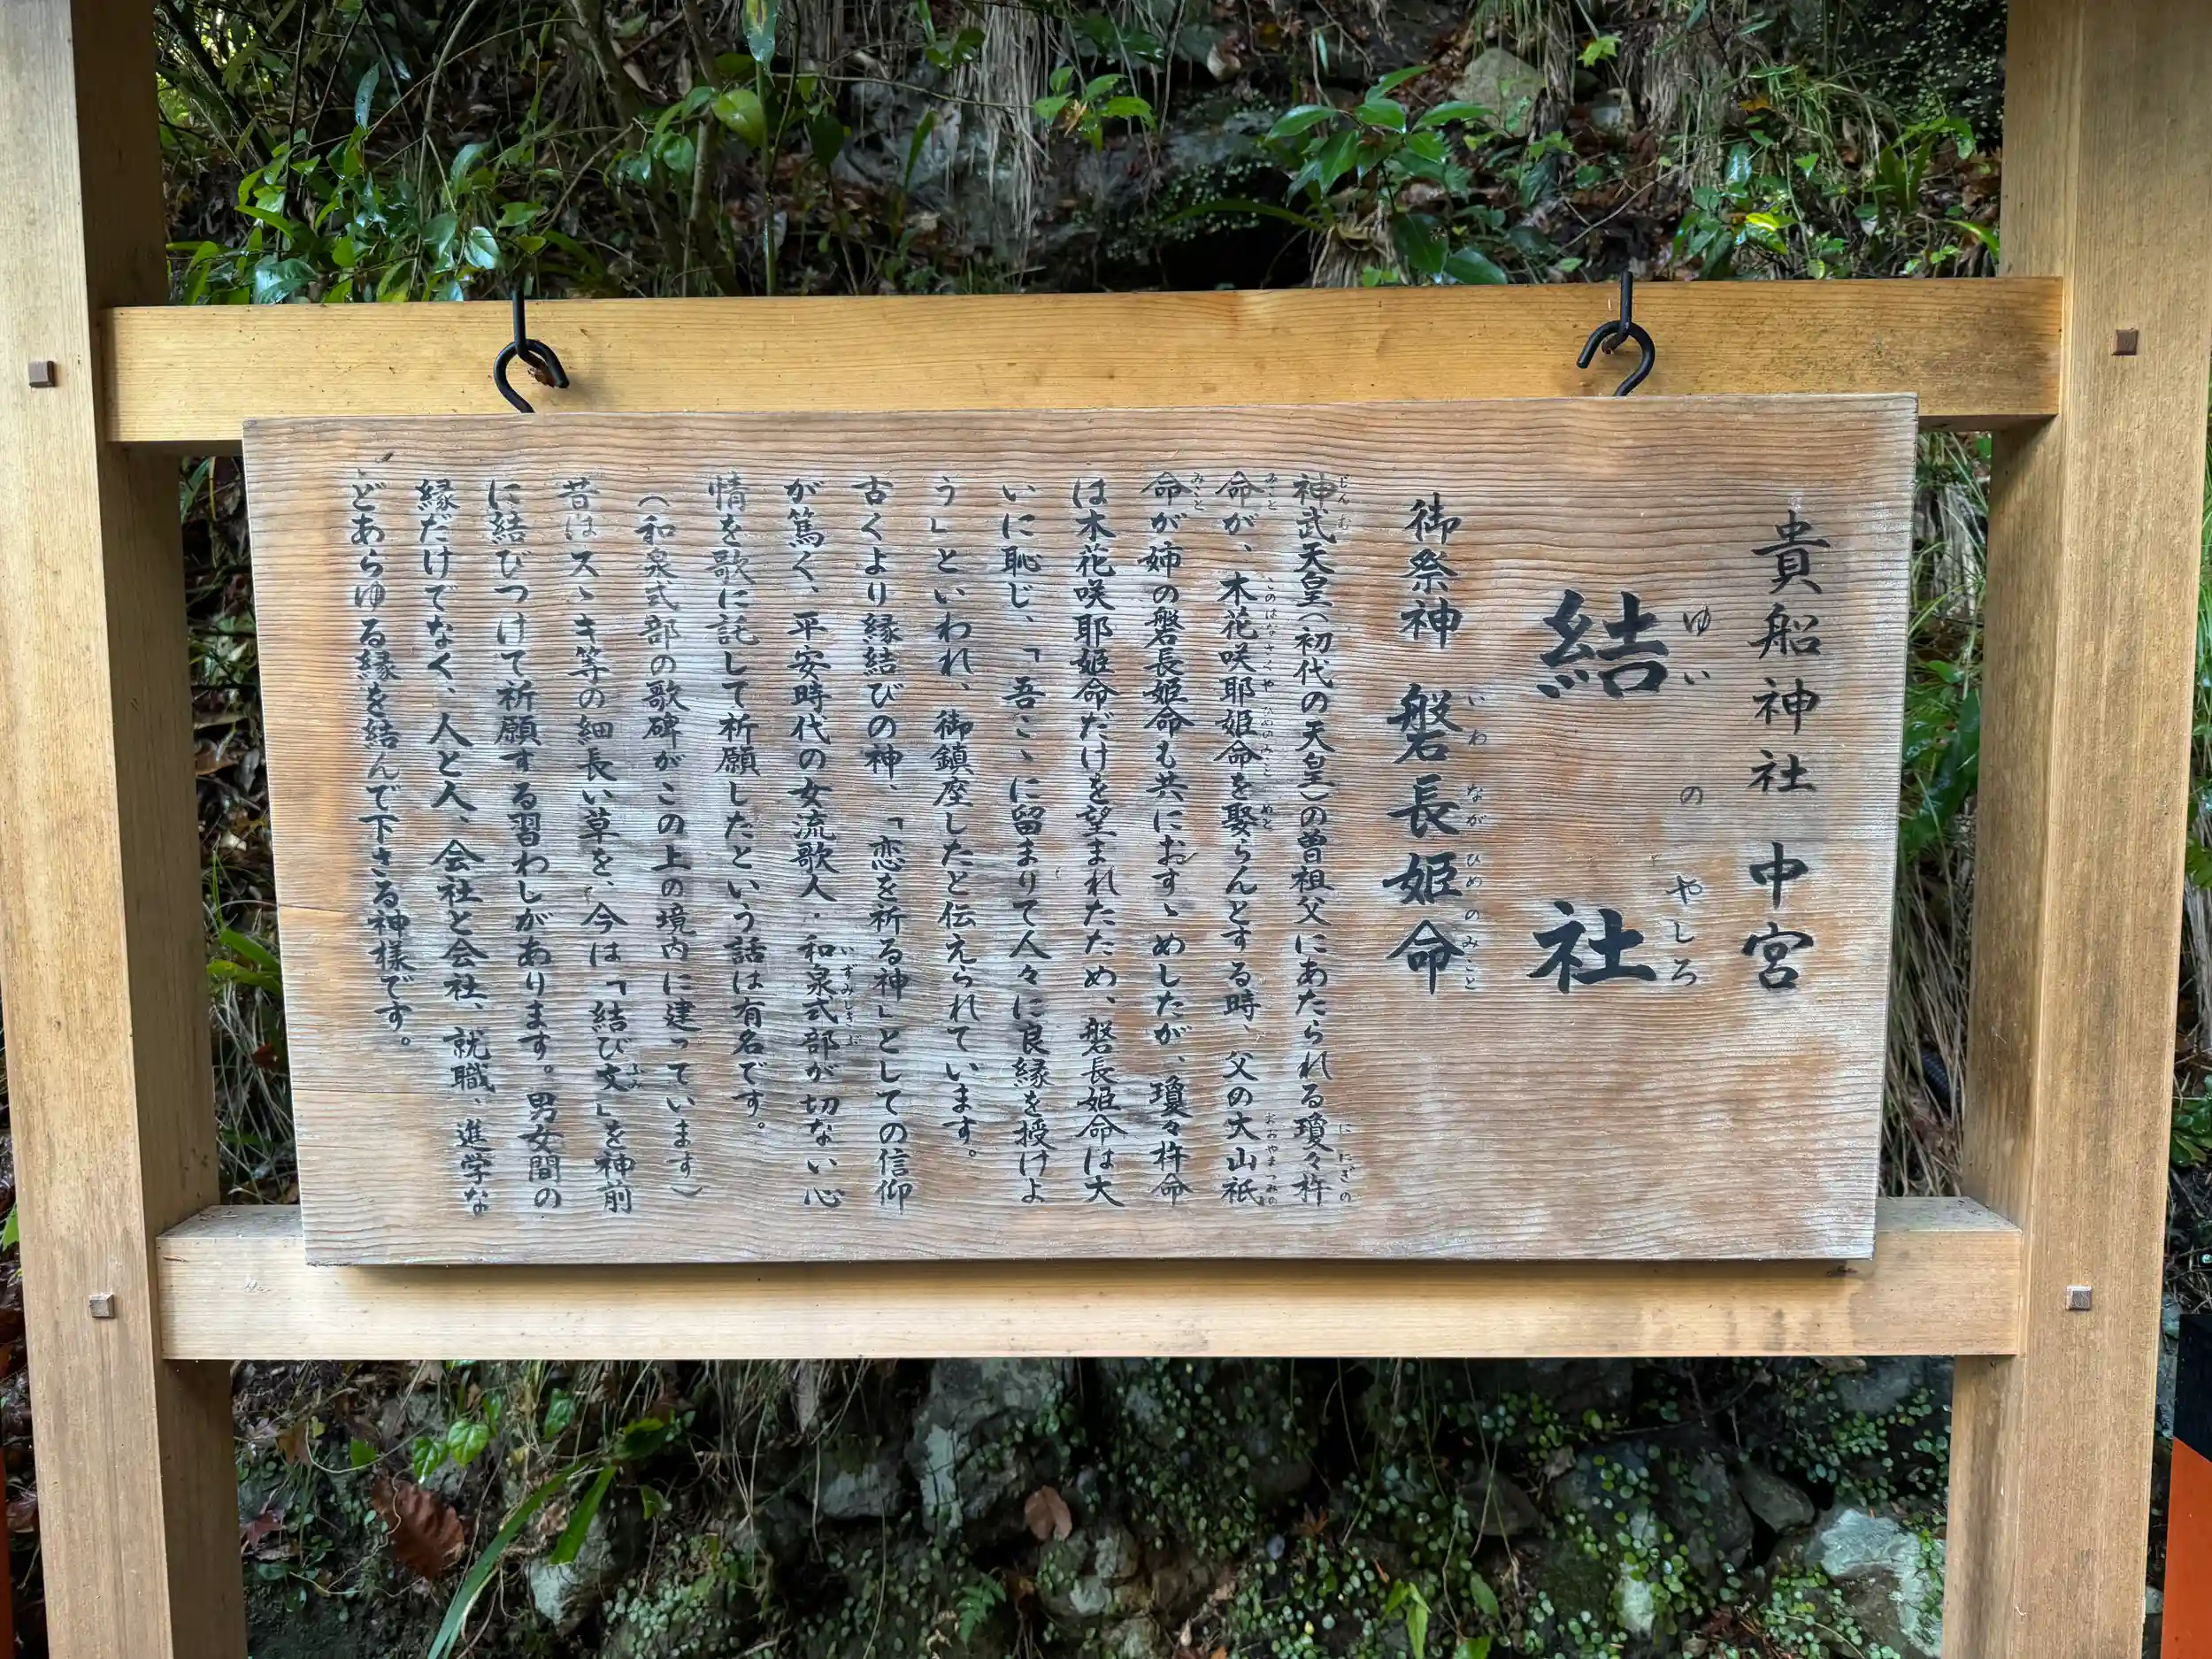 貴船神社 中宮
ゆい の やしろ
結 社
いわ なが ひめ の みこと
御祭神 磐長姫命
じんむ ににぎの
神武天皇（初代の天皇）の曽祖父にあたられる瓊々杵
みこと このはなさくやひめのみこと めと おおやまつみの
命が、木花咲耶姫命を娶らんとする時、父の大山祇
みこと
命が姉の磐長姫命も共におすゝめしたが、瓊々杵命
は木花咲耶姫命だけを望まれたため、磐長姫命は大
いに恥じ、「吾こゝに留まりて人々に良縁を授けよ
う」といわれ、御鎮座したと伝えられています。
古くより縁結びの神、「恋を祈る神」としての信仰
いずみしきぶ
が篤く、平安時代の女流歌人・和泉式部が切ない心
情を歌に託して祈願したという話は有名です。
（和泉式部の歌碑がこの上の境内に建っています）
ふみ
昔はスゝキ等の細長い草を、今は「結び文」を神前
に結びつけて祈願する習わしがあります。男女間の
縁だけでなく、人と人、会社と会社、就職、進学な
どあらゆる縁を結んで下さる神様です。